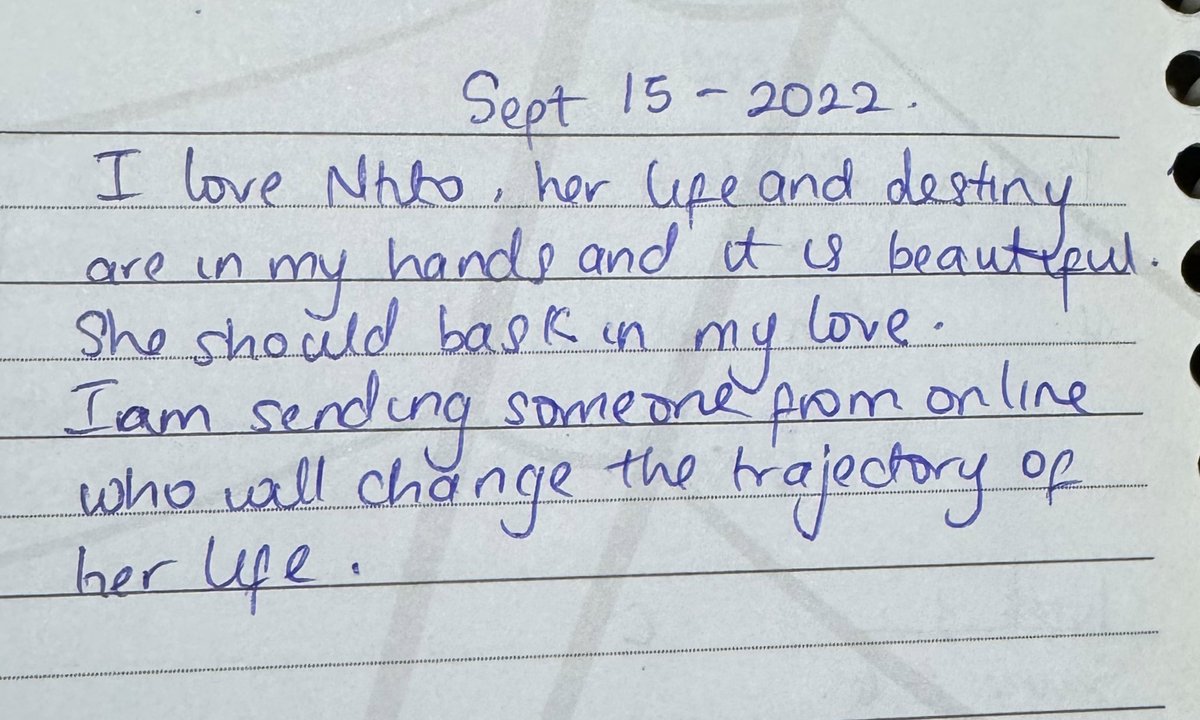 Sept 15 - 2022.
I love Nhto, her life and destiny
are in my hands and it is beautiful.
She should bask in my love.
I am sending someone from online
who will change the trajectory of
her life.